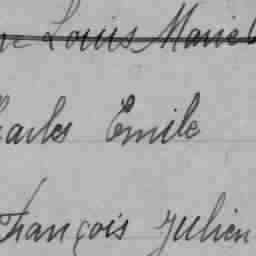 Louis Marie
Charles Emile
François Julien